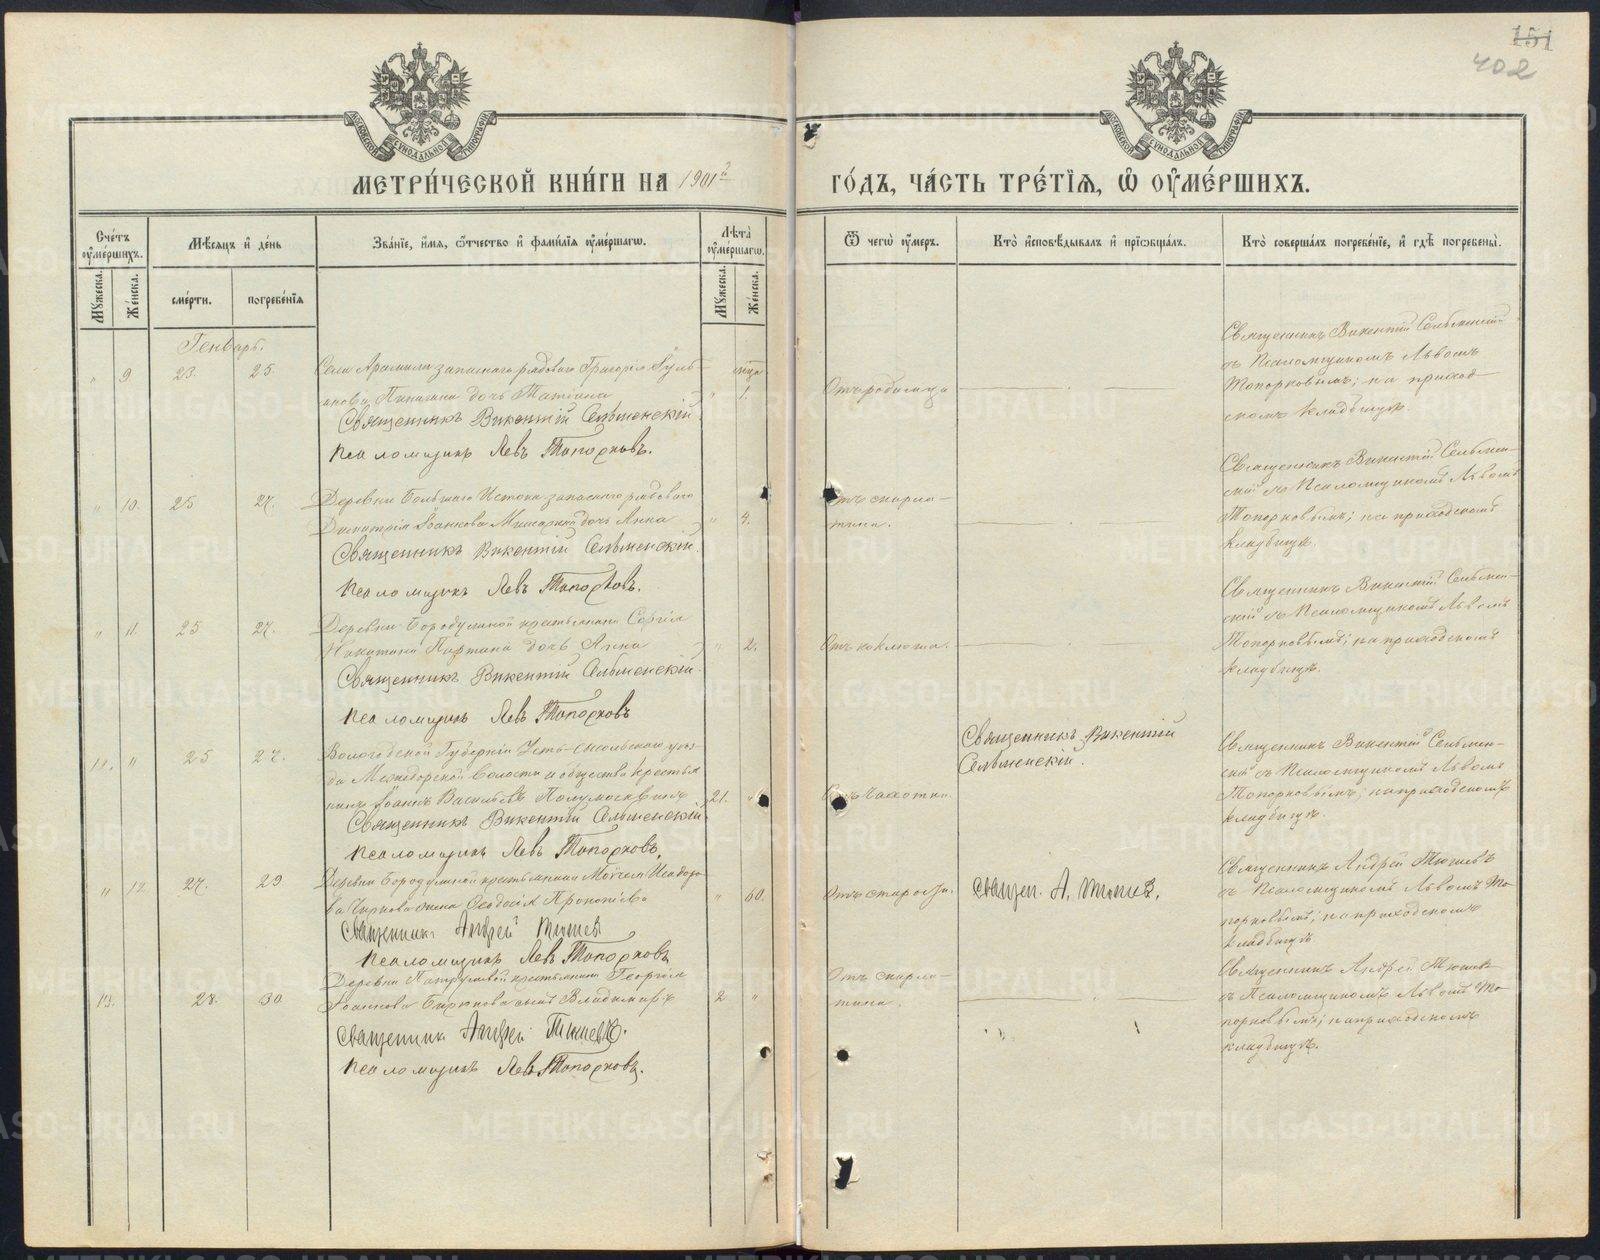 151
402
МОСКОВСКОЙ СУНОДАЛЬНОЙ ТИПОГРАФІИ
МОСКОВСКОЙ СУНОДАЛЬНОЙ ТИПОГРАФІИ
МЕТРИ́ЧЕСКОЙ КНИ́ГИ НА 1901й
ГО́ДЪ, ЧА́СТЬ ТРЕ́ТІѦ, Ѽ ОУ҆МЕ́РШИХЪ.
Сче́тъ оу҆ме́ршихъ.
Мꙋжеска.
Же́нска.
Мѣ́сяцъ и҆ де́нь
сме́рти.
погребе́нїѧ
Зва́нїе, и҆́мѧ, ѻ҆́тчество и҆ фами́лїѧ оу҆ме́ршагѡ.
Лѣ́та оу҆ме́ршагѡ.
Мꙋжеска.
Же́нска.
Ѿ чегѡ̀ оу҆́меръ.
Кто̀ и҆сповѣ́дывалъ и҆ прїѡбща́лъ.
Кто̀ соверша́лъ погребе́нїе, и҆ гдѣ̀ погребены̀.
Генварь.
" 9 23. 25. Села Арамили запаснаго рядового Григорія
дочь Татіана " мца 1. Отъ родимца
Священникъ Викентій Сельменскій
Псаломщикъ Левъ Топорковъ.
Священникъ Викентій Сельменскій
съ Псаломщикомъ Львомъ
Топорковымъ; на приход-
скомъ кладбищѣ.
" 10. 25 27. Деревни Большаго Истока запаснаго рядового
Димитрія Іоаннова дочь Анна " 4. Отъ скарла-
тины.
Священникъ Викентій Сельменскій.
Псаломщикъ Левъ Топорковъ.
Священникъ Викентій Сельмен-
скій съ Псаломщикомъ Львомъ
Топорковымъ; на приходскомъ
кладбищѣ.
" 11. 25 27. Деревни Бородулиной крестьянина Сергія
дочь Анна " 2. Отъ коклюша.
Священникъ Викентій Сельменскій
Псаломщикъ Левъ Топорковъ
Священникъ Викентій Сельмен-
скій съ Псаломщикомъ Львомъ
Топорковымъ; на приходскомъ
кладбищѣ.
12. " 25 27. Вологодской Губерніи Усть-Сысольскаго уѣз-
да Межадорской волости и общества крестья
нинъ Іоаннъ Васильевъ 21. " Отъ чахотки.
Священникъ Викентій Сельменскій
Псаломщикъ Левъ Топорковъ.
Священникъ Викентій
Сельменскій.
Священникъ Викентій Сельмен-
скій съ Псаломщикомъ Львомъ
Топорковымъ; на приходскомъ
кладбищѣ.
" 12. 27. 29 Деревни Бородулиной крестьянина Моисея Исидоро
ва Чиркова жена Прокопіева " 60. Отъ старости.
Священникъ Андрей Тюшевъ
Псаломщикъ Левъ Топорковъ
Священ. А. Тюшевъ.
Священникъ Андрей Тюшевъ
съ Псаломщикомъ Львомъ То-
порковымъ; на приходскомъ
кладбищѣ
13. 28. 30. Деревни Патрушевой крестьянина Георгія
Іоаннова Бирюкова сынъ Владимиръ 2 " Отъ скарла-
тины.
Священникъ Андрей Тюшевъ.
Псаломщикъ Левъ Топорковъ.
Священникъ Андрей Тюшевъ
съ Псаломщикомъ Львомъ То-
порковымъ; на приходскомъ
кладбищѣ.
METRIKI.GASO-URAL.RU